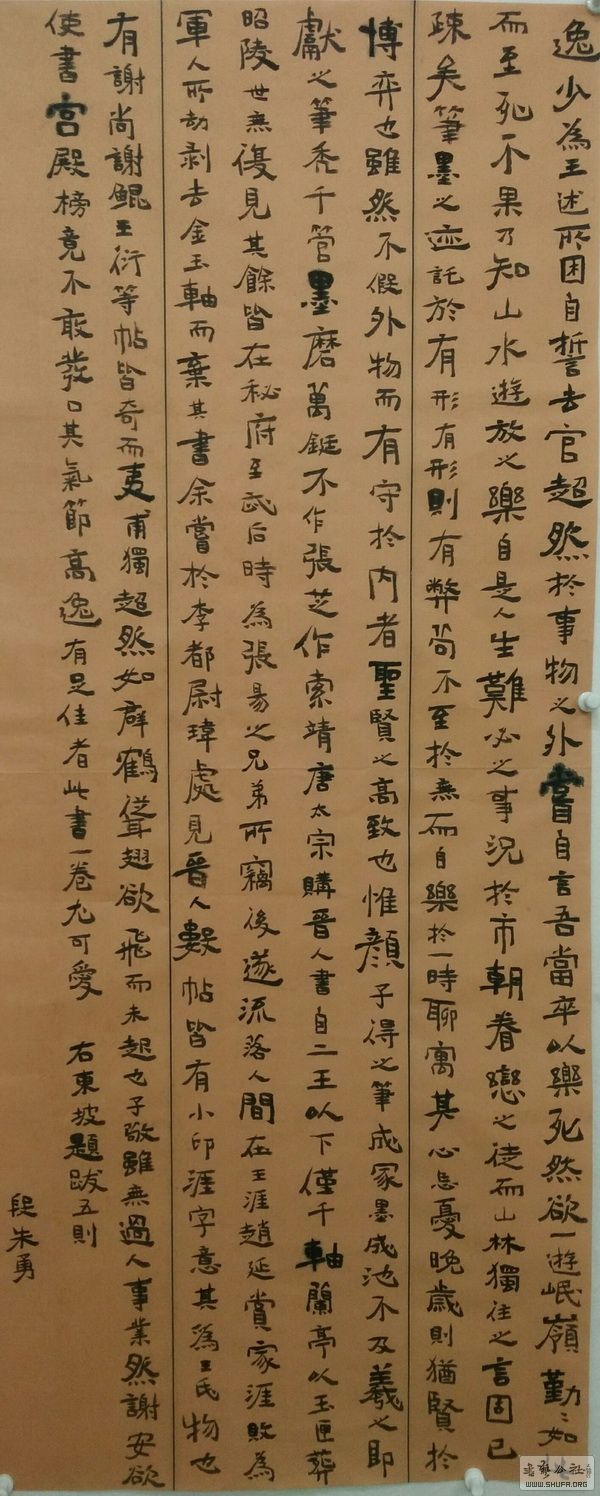 逸少為王述所困自誓去官超然於事物之外嘗自言吾當卒以樂死然欲一遊岷嶺勤〻如
而至死不果乃知山水遊放之樂自是人生難必之事況於市朝眷戀之徒而山林獨往之言固已
疎矣筆墨之迹託於有形有形則有弊苟不至於無而自樂於一時聊寓其心忘憂晚歲則猶賢於
博弈也雖然不假外物而有守於內者聖賢之高致也惟顏子得之筆成冢墨成池不及羲之即
獻之筆禿千管墨磨萬鋌不作張芝作索靖唐太宗購晉人書自二王以下僅千軸蘭亭以玉匣葬
昭陵世無復見其餘皆在秘府至武后時為張易之兄弟所竊後遂流落人間在王涯趙延賞家涯敗為
軍人所劫剥去金玉軸而棄其書余嘗於李都尉瑋處見晉人數帖皆有小印涯字意其為王氏物也
有謝尚謝鯤王衍等帖皆奇而夷甫獨超然如群鶴聳翅欲飛而未起也子敬雖無過人事業然謝安欲
使書宮殿榜竟不敢發口其氣節高逸有足佳者此書一卷尤可愛 右東坡題跋五則
段朱勇
書藝公社
WWW.SHUFA.ORG